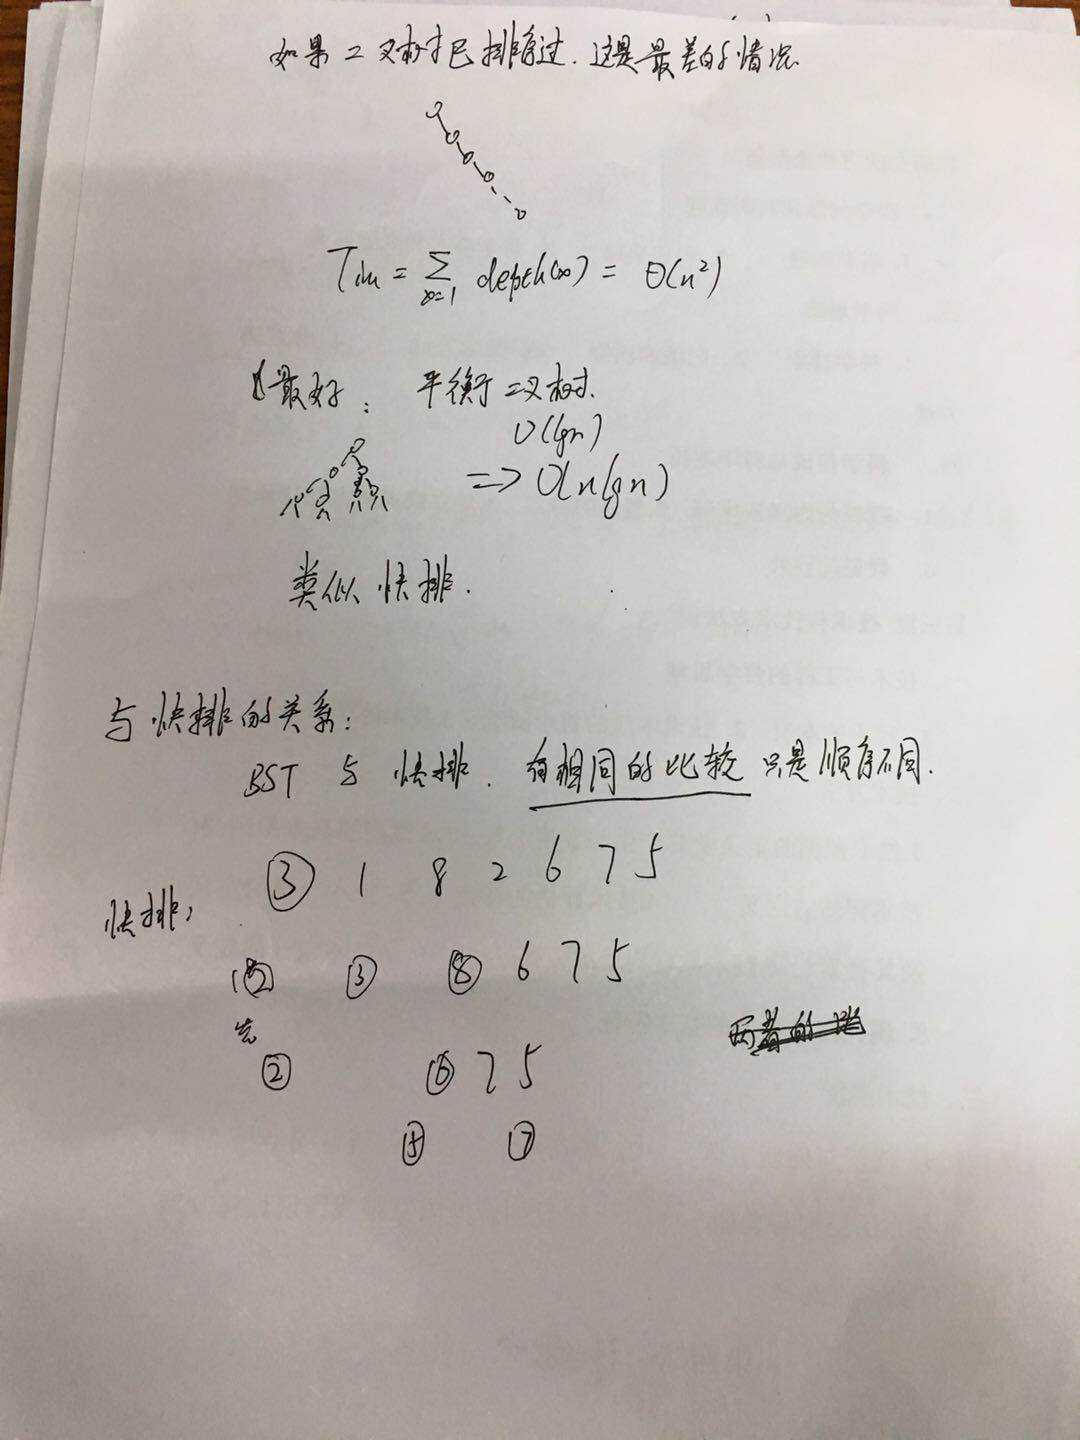 如果二叉树已排序过. 这是最差的情况.
T(n) = ∑ depth(x) = Θ(n²)
x=1
最好: 平衡二叉树.
O(lgn)
=> O(nlgn)
类似快排.
与快排的关系:
BST 与 快排. 有相同的比较 只是顺序不同.
③ 1 8 2 6 7 5
快排:
③ ⑧ 6 7 5
② ⑥ 7 5
⑤ ⑦